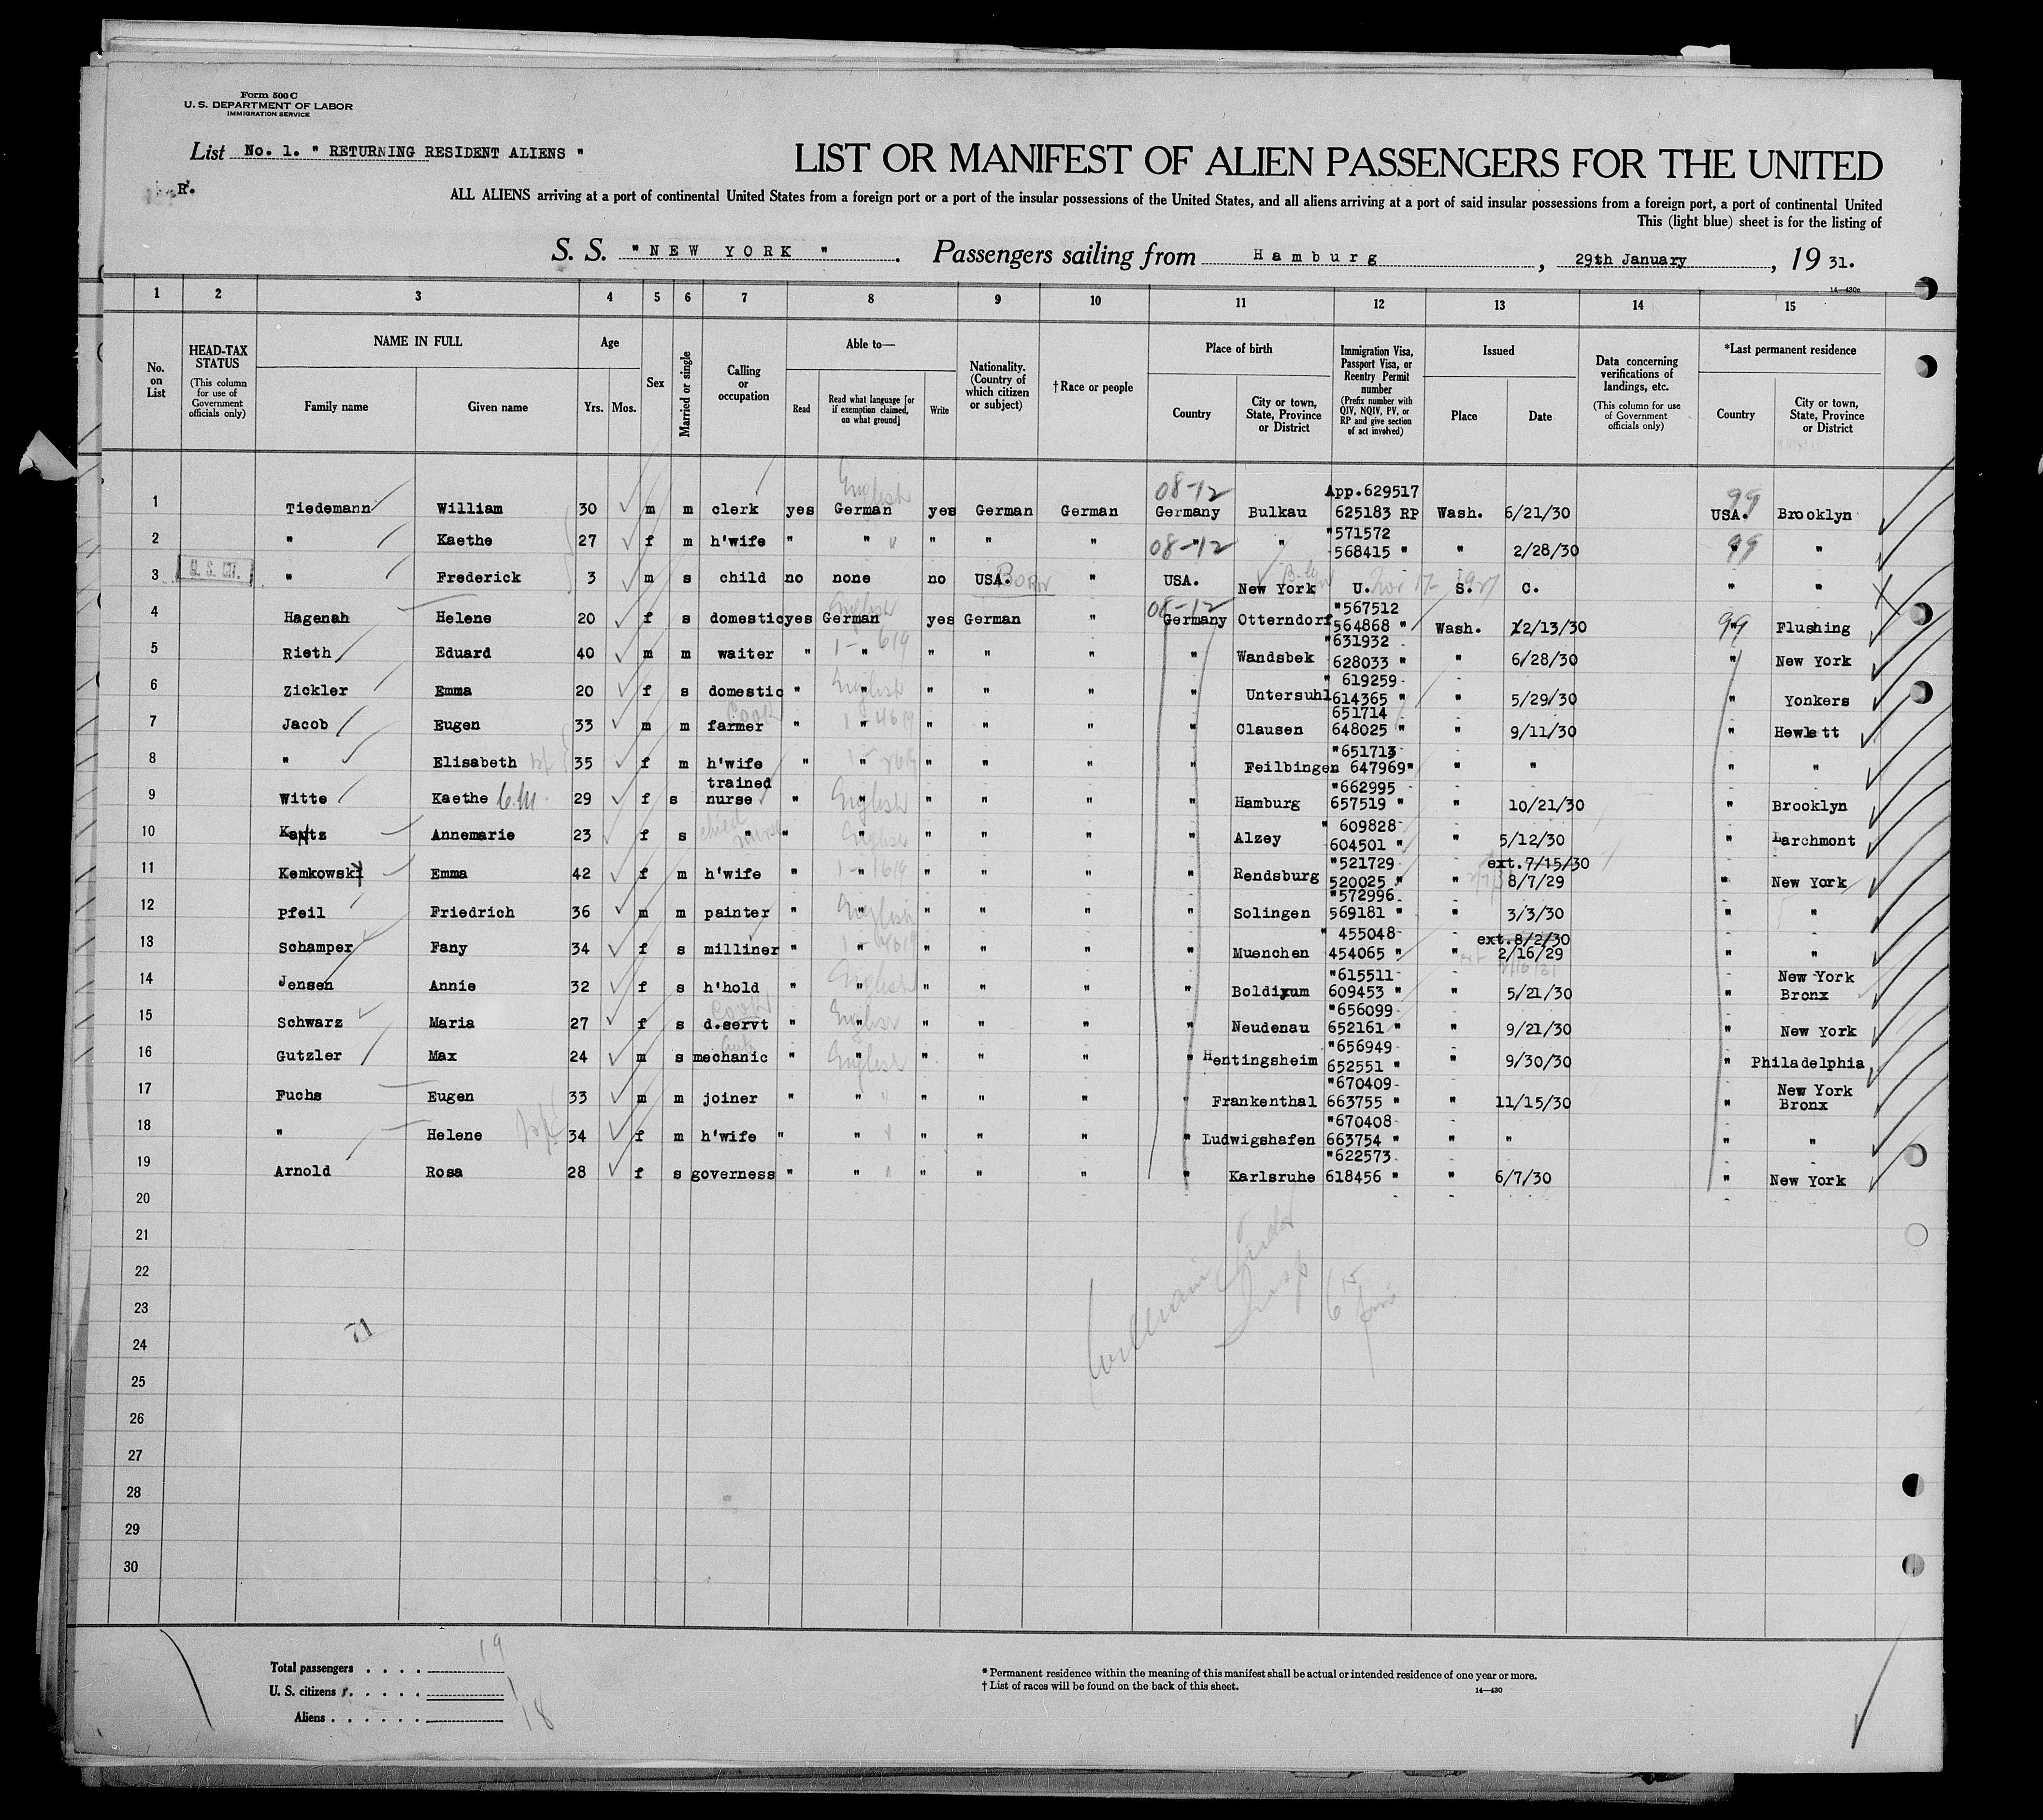 Form 500 C
U. S. DEPARTMENT OF LABOR
IMMIGRATION SERVICE
List No. 1. " RETURNING RESIDENT ALIENS "
LIST OR MANIFEST OF ALIEN PASSENGERS FOR THE UNITED
R.
ALL ALIENS arriving at a port of continental United States from a foreign port or a port of the insular possessions of the United States, and all aliens arriving at a port of said insular possessions from a foreign port, a port of continental United
This (light blue) sheet is for the listing of
S. S. " NEW YORK " . Passengers sailing from Hamburg , 29th January , 19 31.
14—430c
1 2 3 4 5 6 7 8 9 10 11 12 13 14 15
No. on List
HEAD-TAX STATUS (This column for use of Government officials only)
NAME IN FULL Family name Given name
Age Yrs. Mos.
Sex
Married or single
Calling or occupation
Able to— Read Read what language [or if exemption claimed, on what ground] Write
Nationality. (Country of which citizen or subject)
† Race or people
Place of birth Country City or town, State, Province or District
Immigration Visa, Passport Visa, or Reentry Permit number (Prefix number with QIV, NQIV, PV, or RP and give section of act involved)
Issued Place Date
Data concerning verifications of landings, etc. (This column for use of Government officials only)
*Last permanent residence Country City or town, State, Province or District
English 08-12 App.629517 99
1 Tiedemann William 30 m m clerk yes German yes German German Germany Bulkau 625183 RP Wash. 6/21/30 USA. Brooklyn
"571572
2 " Kaethe 27 f m h'wife " " " " " 08-12 " " 568415 " " 2/28/30 99 " "
3 U. S. CIT. " Frederick 3 m s child no none no USA. Born " USA. New York B-lyn U. Nov 17- 1927 S. C. " "
English 08-12 "567512
4 Hagenah Helene 20 f s domestic yes German yes German " Germany Otterndorf 564868 " Wash. 12/13/30 99 " Flushing
1-619 "631932
5 Rieth Eduard 40 m m waiter " " " " " " Wandsbek 628033 " " 6/28/30 " New York
English " 619259
6 Zickler Emma 20 f s domestic " " " " " " Untersuhl 614365 " " 5/29/30 " Yonkers
Cook 1-4619 651714
7 Jacob Eugen 33 m m farmer " " " " " " Clausen 648025 " " 9/11/30 " Hewlett
"651713
8 " Elisabeth 35 f m h'wife " " " " " " Feilbingen 647969" " " " "
trained "662995
9 Witte Kaethe C.M. 29 f s nurse " English " " " " Hamburg 657519 " " 10/21/30 " Brooklyn
" 609828
10 Kantz Annemarie 23 f s child nurse " " English " " " " Alzey 604501 " " 5/12/30 " Larchmont
1-1619 "521729 ext.7/15/30
11 Kemkowski Emma 42 f m h'wife " " " " " Rendsburg 520025 " " 8/7/29 " New York
"572996
12 Pfeil Friedrich 36 m m painter " English " " " " " Solingen 569181 " " 3/3/30 " "
1-4619 " 455048 ext.8/2/30
13 Schamper Fany 34 f s milliner " " " " " " Muenchen 454065 " " 2/16/29 " "
English "615511 New York
14 Jensen Annie 32 f s h'hold " " " " " " Boldixum 609453 " " 5/21/30 " Bronx
Cook English "656099
15 Schwarz Maria 27 f s d.servt " " " " " " Neudenau 652161 " " 9/21/30 " New York
auto English "656949
16 Gutzler Max 24 m s mechanic " " " " " " Hentingsheim 652551 " " 9/30/30 " Philadelphia
"670409 New York
17 Fuchs Eugen 33 m m joiner " " " " " " Frankenthal 663755 " " 11/15/30 " Bronx
"670408
18 " Helene 34 f m h'wife " " " " " " Ludwigshafen 663754 " " " " "
"622573
19 Arnold Rosa 28 f s governess " " " " " " Karlsruhe 618456 " " 6/7/30 " New York
20
21
22
23
24
25
26
27
28
29
30
71
William
Insp
Total passengers . . . . 19
U. S. citizens . . . . . 1
Aliens . . . . . . 18
* Permanent residence within the meaning of this manifest shall be actual or intended residence of one year or more.
† List of races will be found on the back of this sheet.
14—430